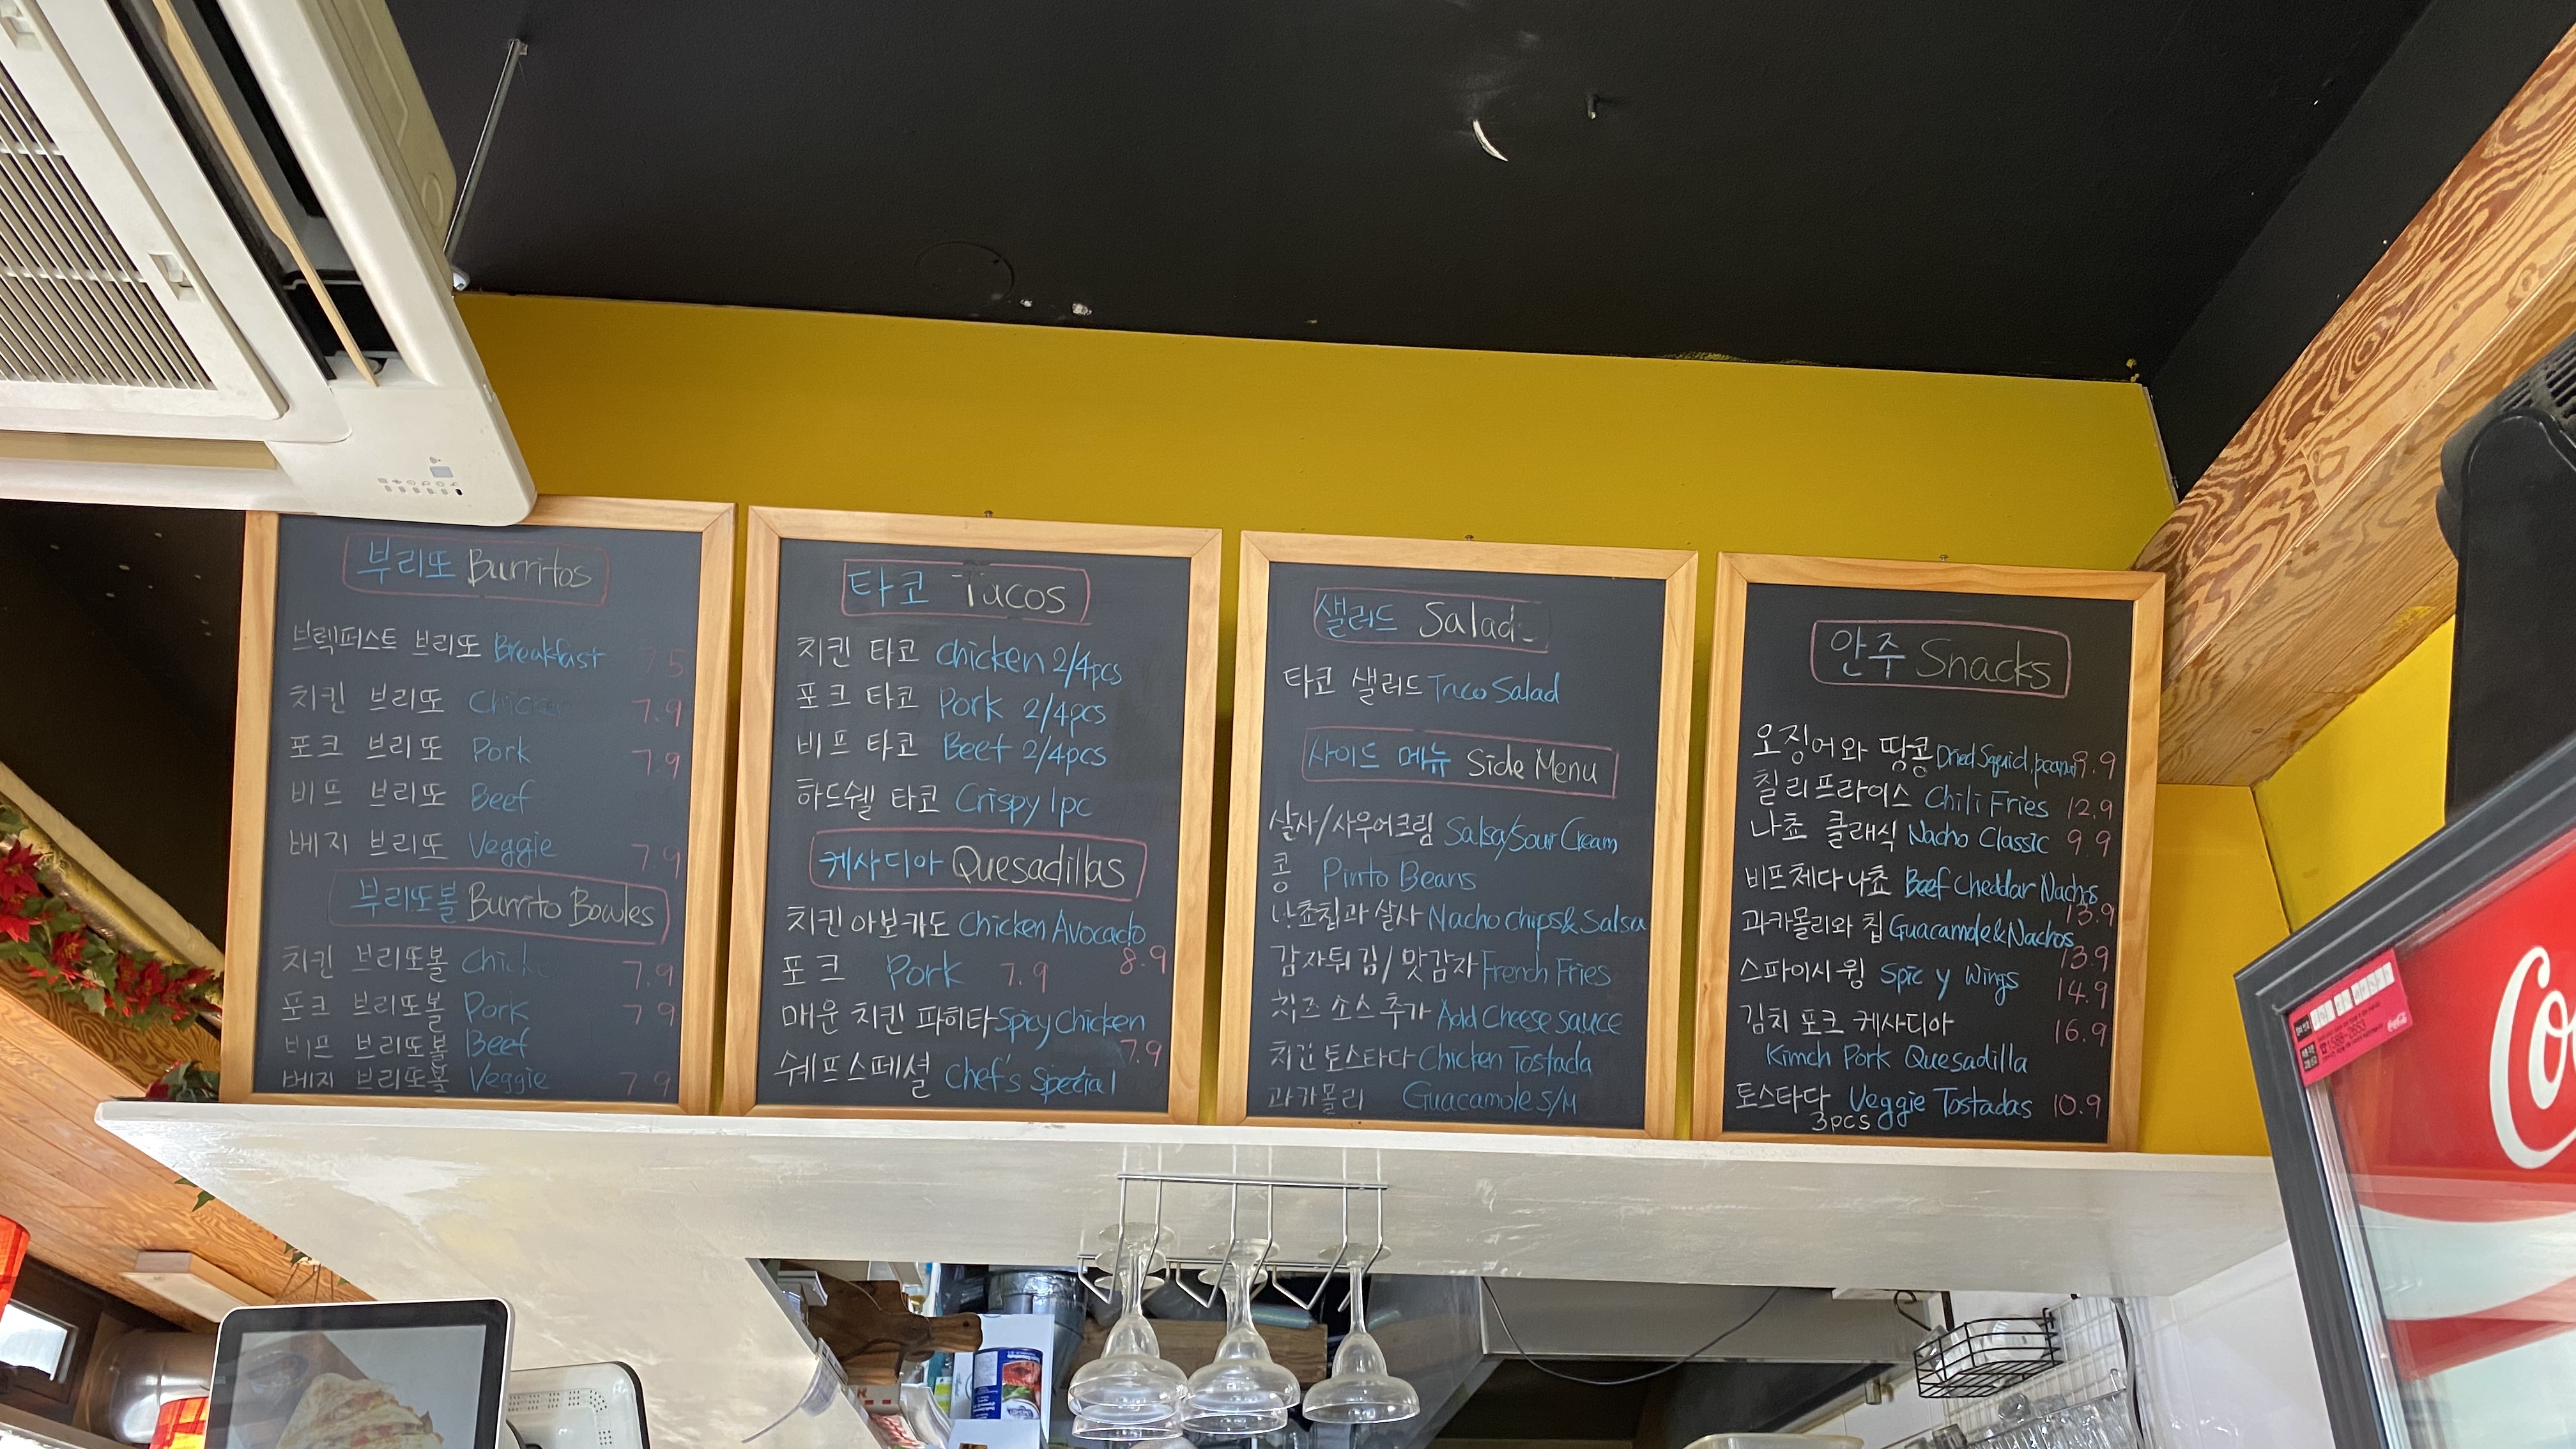 부리또 Burritos
브렉퍼스트 브리또 Breakfast 7.5
치킨 브리또 Chicken 7.9
포크 브리또 Pork 7.9
비프 브리또 Beef
베지 브리또 Veggie 7.9
부리또볼 Burrito Bowles
치킨 브리또볼 Chick 7.9
포크 브리또볼 Pork 7.9
비프 브리또볼 Beef
베지 브리또볼 Veggie 7.9
타코 Tacos
치킨 타코 chicken 2/4pcs
포크 타코 Pork 2/4pcs
비프 타코 Beef 2/4pcs
하드쉘 타코 Crispy 1pc
케사디아 Quesadillas
치킨아보카도 Chicken Avocado
8.9
포크 Pork 7.9
매운 치킨 파히타 Spicy Chicken
7.9
쉐프스페셜 Chef's Special
샐러드 Salad
타코 샐러드 Taco Salad
사이드 메뉴 Side Menu
살사/사우어크림 Salsa/Sour Cream
콩 Pinto Beans
나쵸칩과 살사 Nacho chips & Salsa
감자튀김/맛감자 French Fries
치즈 소스 추가 Add Cheese sauce
치킨 토스타다 Chicken Tostada
과카몰리 Guacamole S/M
안주 Snacks
오징어와 땅콩 Dried Squid, peanut 9.9
칠리프라이스 Chili Fries 12.9
나쵸 클래식 Nacho Classic 9.9
비프체다나쵸 Beef Cheddar Nachos
13.9
과카몰리와 칩 Guacamole & Nachos
13.9
스파이시 윙 Spicy Wings 14.9
김치 포크 케사디아 16.9
Kimch Pork Quesadilla
토스타다 Veggie Tostadas 10.9
3pcs
Co